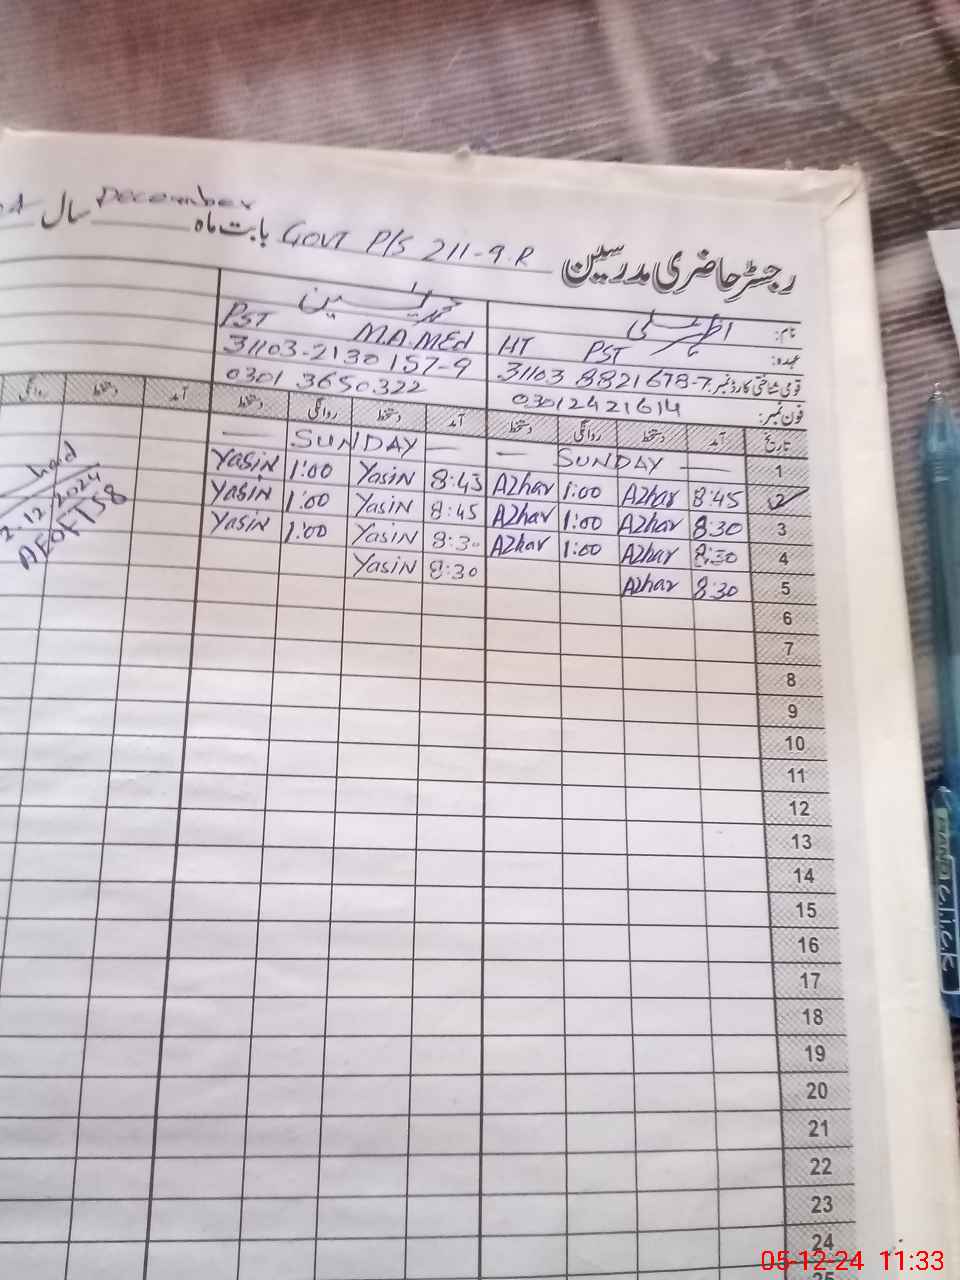 رجسٹر حاضری مدرسین GOVT P/S 211-9.R بابت ماہ December سال
نام: اظہر علی محمد یٰسین
عہدہ: HT PST PST M.A.MEd
قومی شناختی کارڈ نمبر: 31103 8821678-7 31103-2130157-9
فون نمبر: 03012421614 0301 3650322
تاریخ آمد دستخط روانگی دستخط آمد دستخط روانگی دستخط آمد دستخط روانگی
1 — SUNDAY — — SUNDAY —
2 8:45 Azhar 1:00 Azhar 8:43 Yasin 1:00 Yasin
3 8:30 Azhar 1:00 Azhar 8:45 Yasin 1:00 Yasin
4 8:30 Azhar 1:00 Azhar 8:30 Yasin 1:00 Yasin
5 8:30 Azhar 8:30 Yasin
6
7
8
9
10
11
12
13
14
15
16
17
18
19
20
21
22
23
24
25
2.12.2024
AEOFT58
click
05-12-24 11:33